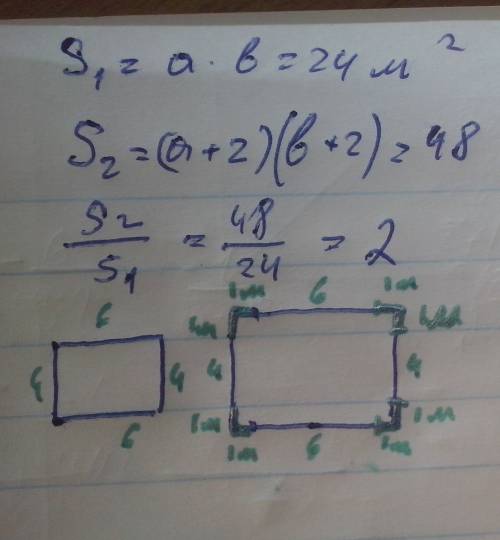 S₁ = a · b = 24 м²
S₂ = (a + 2)(b + 2) = 48
S₂/S₁ = 48/24 = 2
1м 6 1м
6 1м 1м
4 4 4 4
6 1м 1м
1м 6 1м